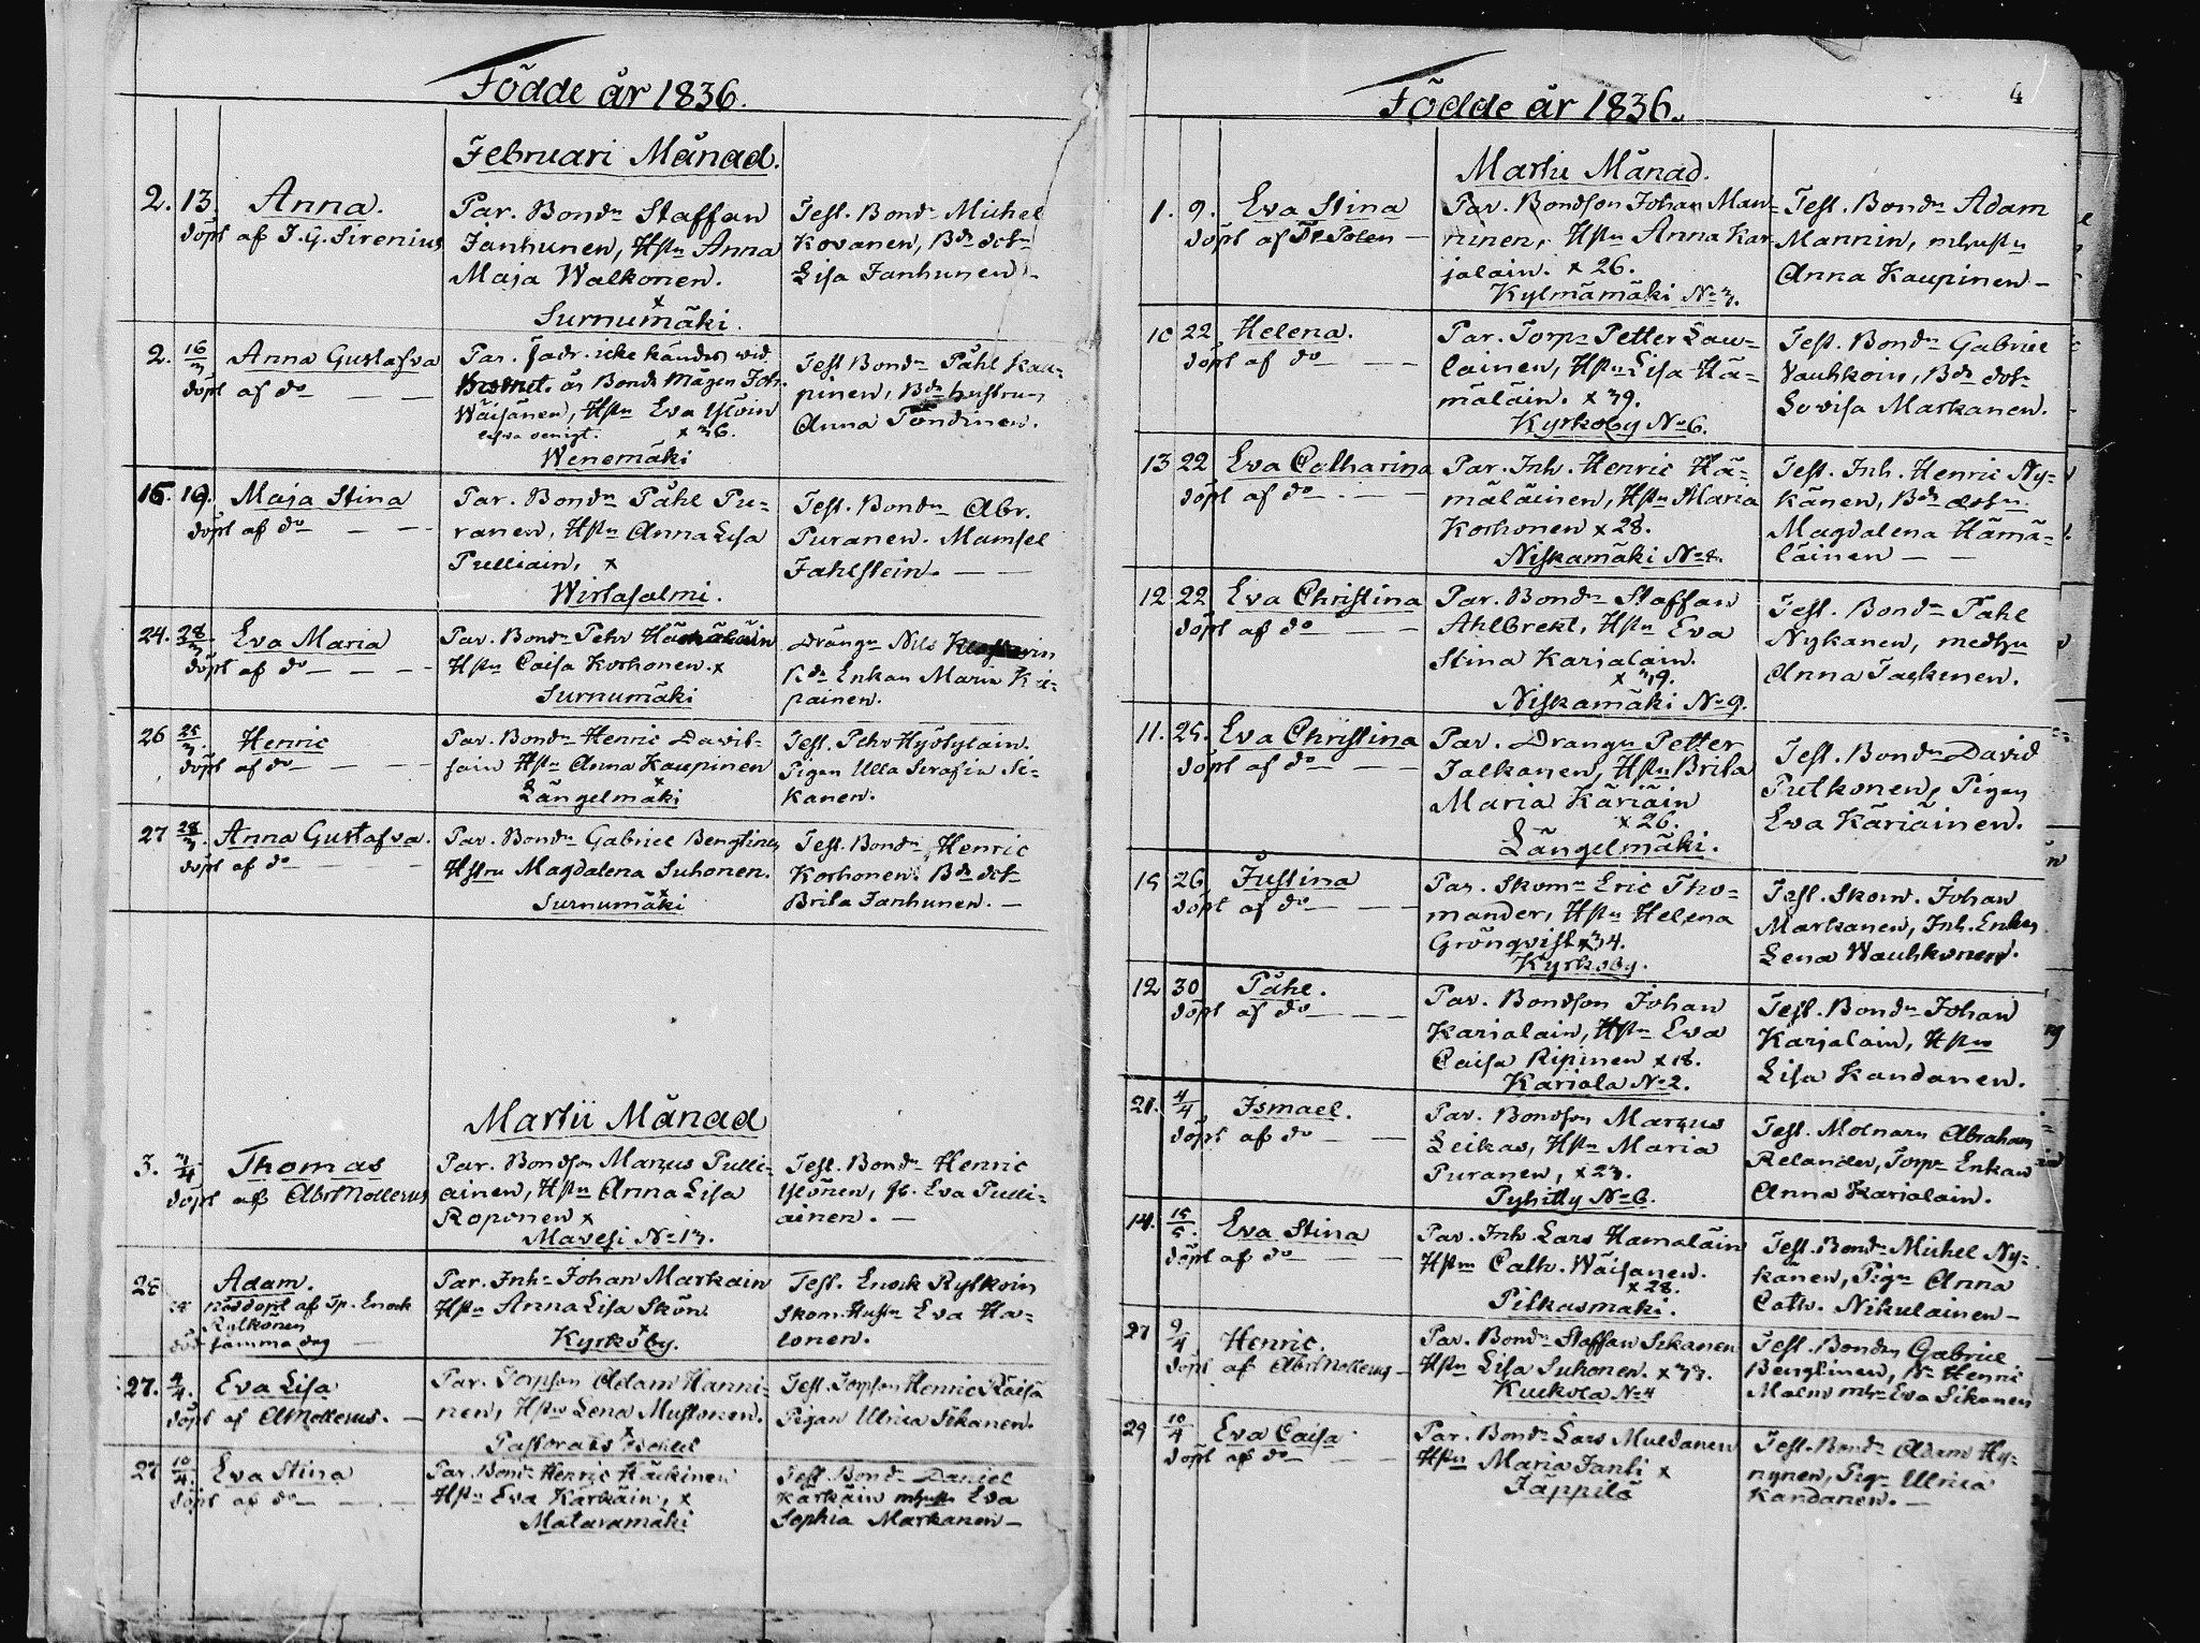 Födde år 1836.
Februari Månad.
2. 13. Anna.
döpt af J. G. Sirenius
Par. Bondn Staffan
Janhunen, Hstn Anna
Maja Walkonen.
x
Surnumäki.
Test. Bondn Michel
Kovanen, Bds dotr
Lisa Janhunen –
2. 16/3 Anna Gustafva
döpt af do — —
Par. fadr. icke kändes wid
är Bonds Mågen Joh.
Wäisänen, Hstn Eva Ylöin
x 36.
Wenemäki
Test Bondn Påhl Kau=
pinen, Bds hustrun
Anna Pöndinen.
15. 19. Maja Stina
döpt af do — —
Par. Bondn Påhl Pu=
ranen, Hstn Anna Lisa
Pulliain, x
Wirtasalmi.
Test. Bondn Abr.
Puranen. Mamsel
Fahlstein. — —
24. 28/3 Eva Maria
döpt af do — — —
Par. Bondn Pehr Hämäläin
Hstn Caisa Korhonen. x
Surnumäki
Drängn Nils
Bds Enkan Maria Kä=
painen.
26 25/3. Henric
döpt af do — — —
Par. Bondn Henric Davit=
sain Hstn Anna Kaupinen
x
Längelmäki
Test. Pehr Hyötyläin.
Pigan Ulla Serafia Si=
kanen.
27 28/3. Anna Gustafva.
döpt af do — —
Par. Bondn Gabriel Bengtinen
Hstru Magdalena Suhonen.
x
Surnumäki
Test. Bondn Henric
Korhonen. Bds dotr
Brita Janhunen. –
Martii Månad
3. 3/4 Thomas
döpt af Abr Mollerus
Par. Bondson Marcus Pulli=
ainen, Hstn Anna Lisa
Roponen x
Mavesi No 13.
Test. Bondn Henric
Ylönen, Eva Pulli=
ainen. –
25 Adam.
Nöddöpt af Enock
Rytkönen
död samma dag —
Par. Inhs Johan Markain
Hstn Anna Lisa Skön
x
Kyrkoby.
Test. Enock Rytkoin
Skom. Hustn Eva Ha=
lonen.
27. 4/4. Eva Lisa
döpt af A Mollerus. –
Par. Torpson Adam Hanni=
nen, Hstn Lena Mustonen.
x
Test. Torpson Henric Räisä
Pigan Ulrica Sikanen.
27 10/4. Eva Stina
döpt af do — — —
Par. Bondn Henric Käckinen
Hstn Eva Kärkäin, x
Mataramäki
Test Bondn Daniel
Kärkäin mhustr Eva
Sophia Markanen –
4
Födde år 1836.
Martii Månad.
1. 9. Eva Stina
döpt af Polen –
Par. Bondson Johan Man=
ninen, Hstn Anna Kar=
jalain. x 26.
Kylmämäki No 3.
Test. Bondn Adam
Mannin, mhustn
Anna Kaupinen –
10 22 Helena.
döpt af do — —
Par. Torpr Petter Lau=
lainen, Hstn Lisa Hä=
mäläin. x 39.
Kyrkoby No 6.
Test. Bondn Gabriel
Vauhkoin, Bds dotr
Lovisa Markanen.
13 22 Eva Catharina
döpt af do — —
Par. Inh. Henric Hä=
mäläinen, Hstn Maria
Korhonen x 28.
Niskamäki No 4.
Test. Inh. Henric Ny=
känen, Bds dotn
Magdalena Hämä=
läinen — —
12 22 Eva Christina
döpt af do — —
Par. Bondn Staffan
Ahlbrekt, Hstn Eva
Stina Karjalain.
x 39.
Niskamäki No 9.
Test. Bondn Påhl
Nykanen, medhu
Anna Taskinen.
11. 25. Eva Christina
döpt af do — —
Par. Drängn Petter
Jalkanen, Hstn Brita
Maria Käriäin
x 26.
Längelmäki.
Test. Bondn David
Putkonen, Pigan
Eva Käriäinen.
15 26 Justina
döpt af do — —
Par. Skomr Eric Tho=
mander, Hstn Helena
Grönqvist x 34.
Kyrkoby.
Test. Skom. Johan
Markanen, Inh. Enkn
Lena Wauhkonen.
12 30 Påhl.
döpt af do — — —
Par. Bondson Johan
Karjalain, Hstn Eva
Caisa Ripinen x 18.
Karjala No 2.
Test. Bondn Johan
Karjalain, Hstru
Lisa Kandanen.
21. 4/4 Ismael.
döpt af do — —
Par. Bondson Marcus
Leikas, Hstn Maria
Puranen, x 23.
Pyhitty No 6.
Test. Molnarn Abraham
Relander, Torpr Enkan
Anna Karjalain.
14. 15/5. Eva Stina
döpt af do —
Par. Inh Lars Hamaläin
Hstru Cath. Wäisanen.
x 28.
Pitkasmäki.
Test. Bondn Michel Ny=
känen, Pign Anna
Cath. Nikulainen –
27 9/4 Henric.
döpt af Abr Mollerus –
Par. Bondn Staffan Sikanen
Hstn Lisa Suhonen. x 33.
Kuikola No 4
Test. Bondn Gabriel
Bengtinen, Henric
Malm mhr Eva Sikanen
29 10/4 Eva Caisa
döpt af do — —
Par. Bondn Lars Muldanen
Hstn Maria Janti x
Jäppilä
Test. Bondn Adam Hy=
nynen, Pign Ulrica
Kandanen. –